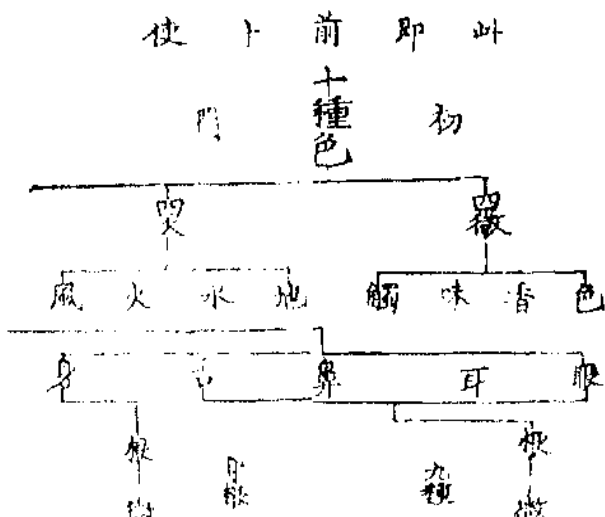 此即前卜使
初
十種色
門
四微
四大
色香味觸
地水火風
眼耳鼻舌身
根
九種
根
微